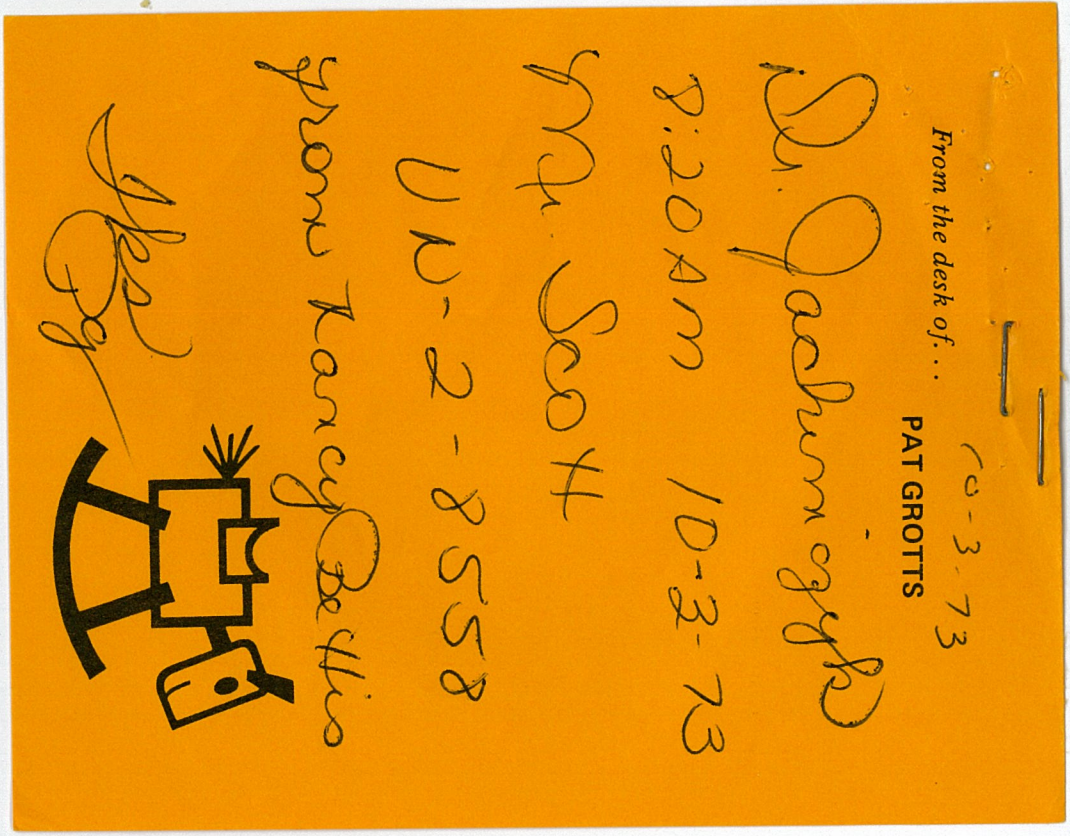 10-3-73
From the desk of...
PAT GROTTS
Dr. Jachimczyk
8:20 AM 10-3-73
Mr. Scott
UN-2-8558
from Nancy Bettis
Pg